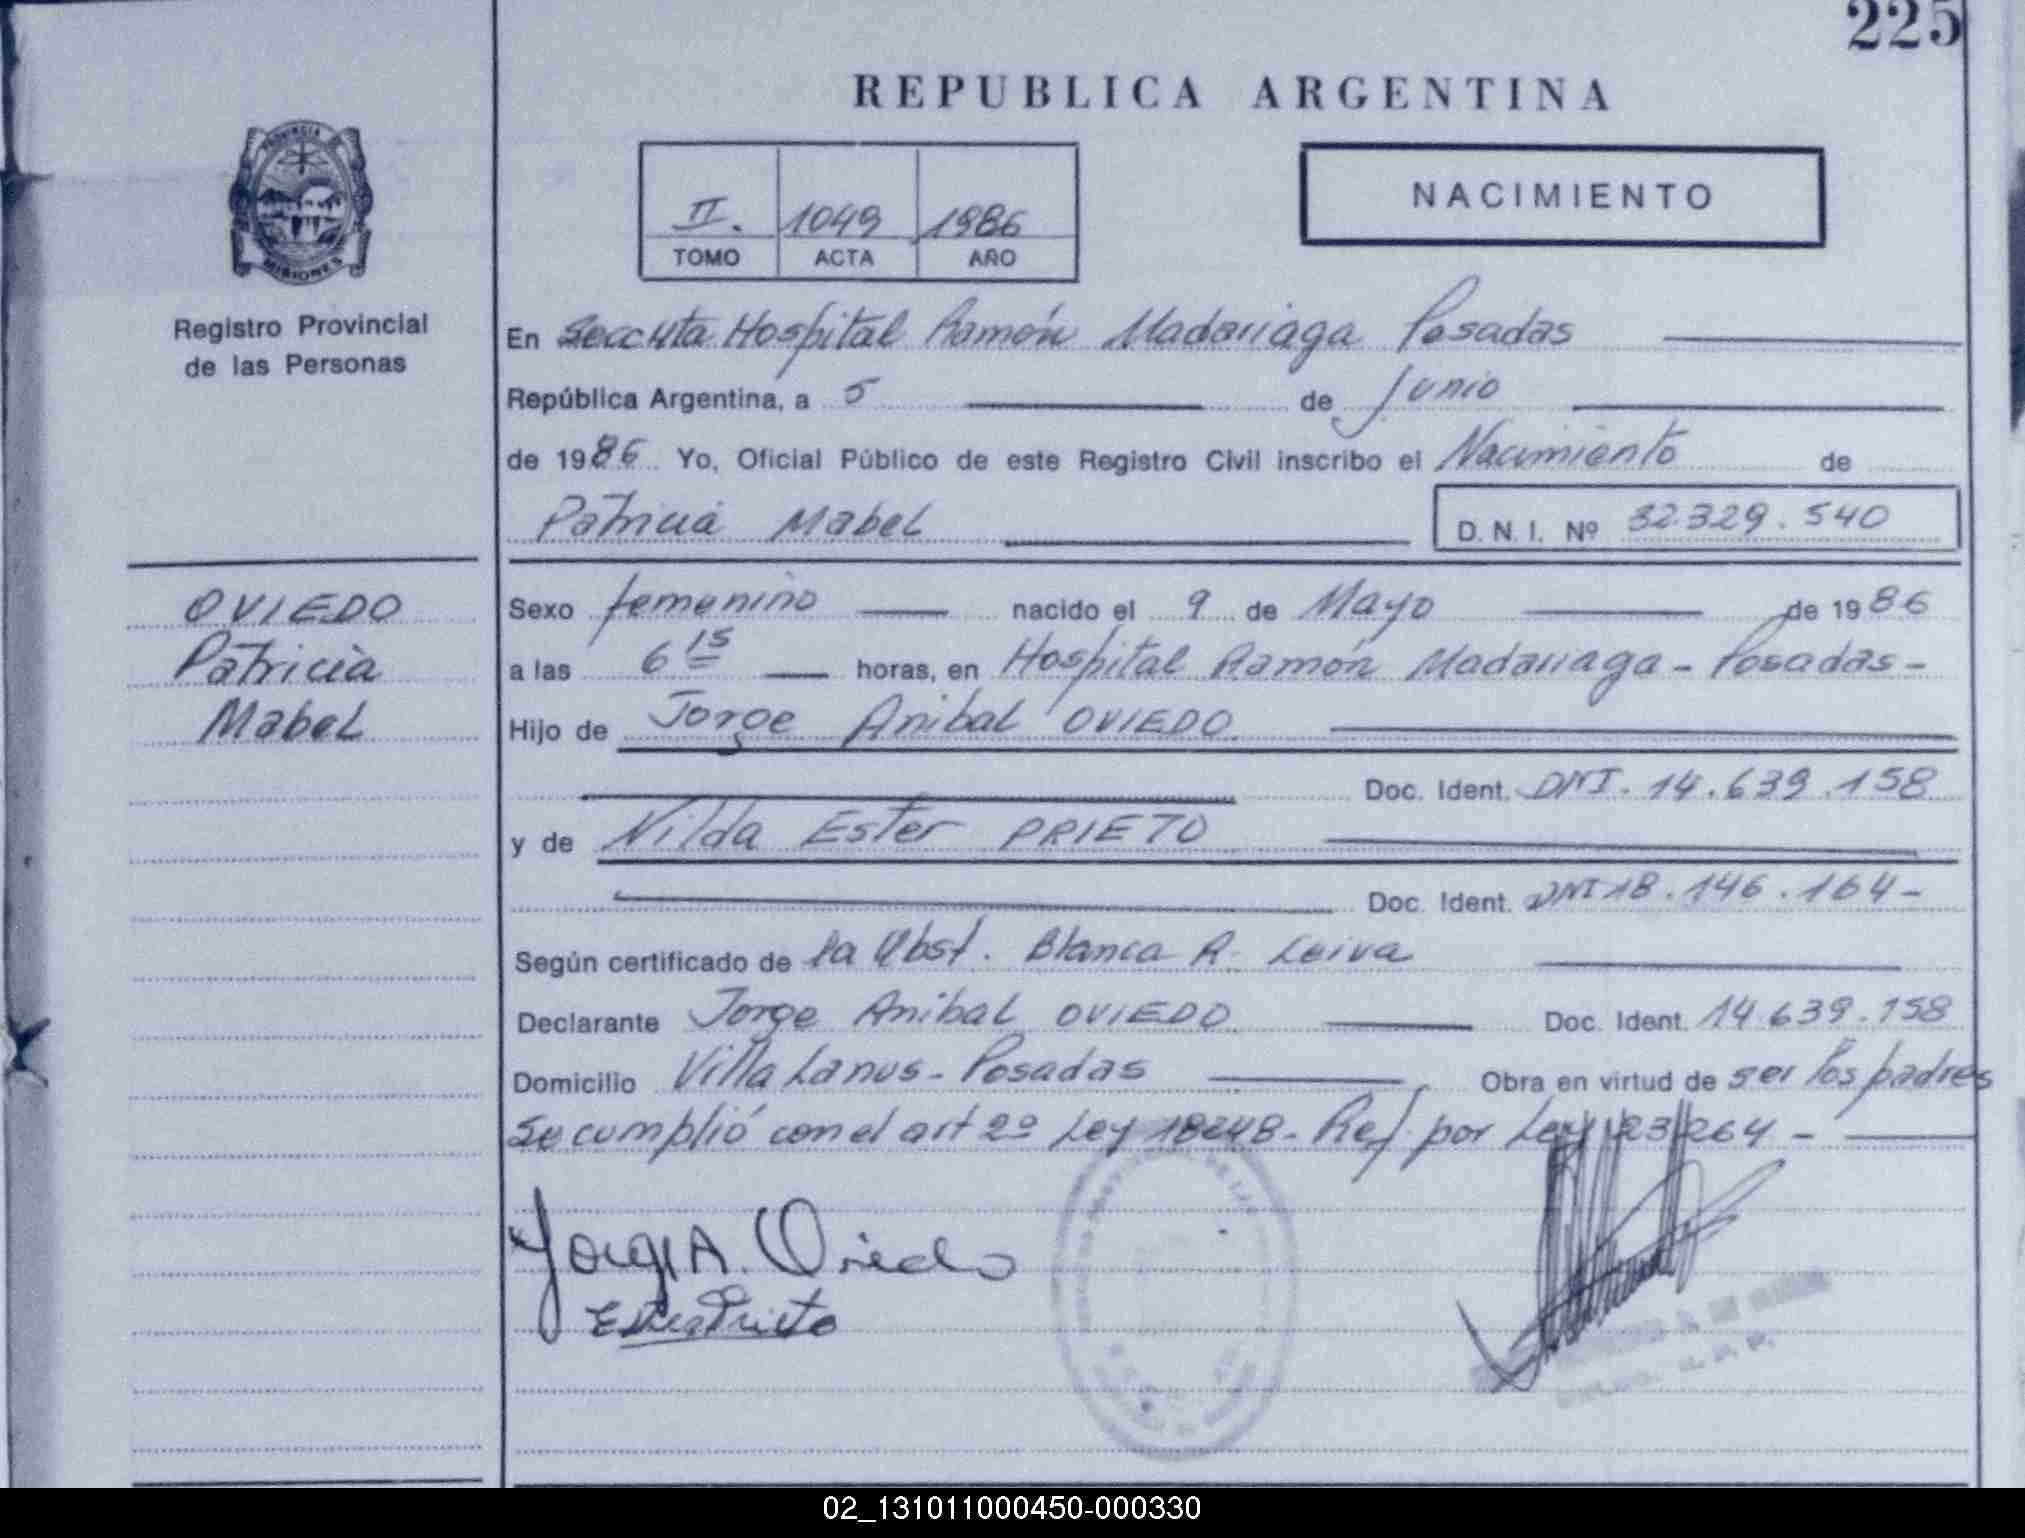 225
REPUBLICA ARGENTINA
PROVINCIA DE
MISIONES
Registro Provincial
de las Personas
II. 1049 1986
TOMO ACTA AÑO
NACIMIENTO
En Hospital Ramón Madariaga Posadas
República Argentina, a 5 de Junio
de 1986 Yo, Oficial Público de este Registro Civil inscribo el Nacimiento de
Patricia Mabel
D. N. I. Nº 32.329.540
OVIEDO
Patricia
Mabel
Sexo femenino nacido el 9 de Mayo de 1986
a las 6 15 horas, en Hospital Ramón Madariaga - Posadas -
Hijo de Jorge Anibal OVIEDO
Doc. Ident. DNI. 14.639.158
y de Nilda Ester PRIETO
Doc. Ident. DNI 18.146.164 -
Según certificado de la Obst. Blanca A. Leiva
Declarante Jorge Anibal OVIEDO Doc. Ident. 14.639.158
Domicilio Villa Lanus - Posadas Obra en virtud de ser los padres
Se cumplió con el art 2º Ley 18248 - Ref. por Ley 23264 -
Jorge A. Oviedo
Ester Prieto
02_131011000450-000330